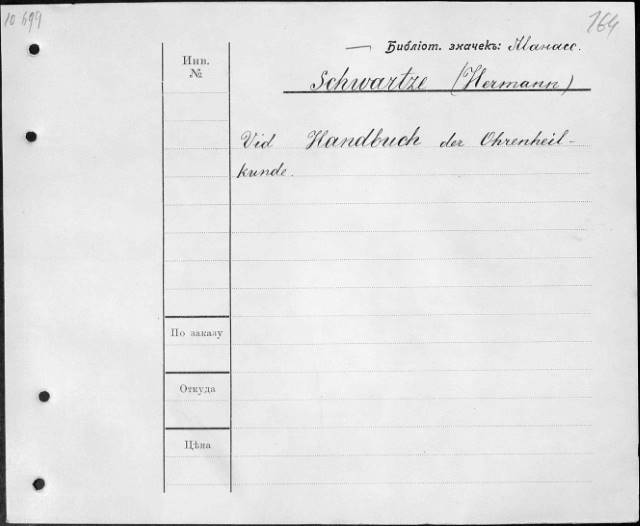 10699
164
Библіот. значекъ: Манасс.
Инв.
№
Schwartze (Hermann)
Vid Handbuch der Ohrenheil-
kunde.
По заказу
Откуда
Цѣна